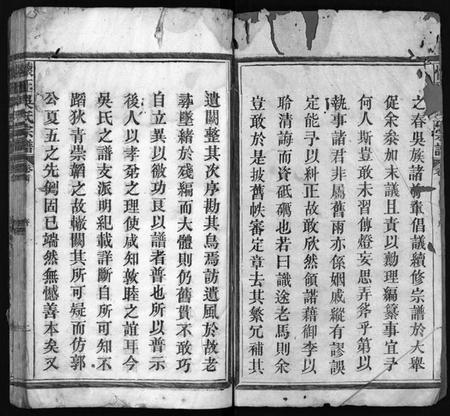 之春吳族諸前輩倡議續修宗譜於大舉
促余叅加末議且責以勷理編纂事宜予
何人斯豈敢未習傳燈妄思弄斧乎第以
執事諸君非屬舊雨亦係姻戚縱有謬誤
定能予以糾正故敢欣然領諾藉御李以
聆清誨而資砥礪也若曰識途老馬則余
豈敢於是披舊帙審定章去其繁冗補其
遺闕整其次序勘其鳥焉訪遺風於故老
尋墜緒於殘編而大體則仍舊貫不敢巧
自立異以徼功良以譜者普也所以普示
後人以孝弟之理使咸知敦睦之誼耳今
吳氏之譜支派明紀載詳斷自所可知不
蹈狄青崇韜之故轍闕其所可疑而仿郭
公夏五之先例固已端然無憾善本矣又
吳氏宗譜